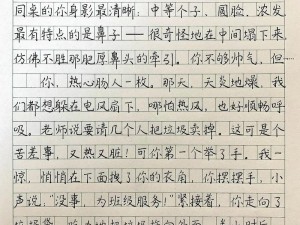 同桌的你身影最清晰：中等个子、圆脸、浓发。
最有特点的是鼻子——很奇怪地在中间塌下来，
仿佛不胜那肥厚鼻头的牵引。你不够帅气，但
你，热心肠人一枚。那天，天炎地燥，我
们都想躲在电风扇下，哪怕热风，也好顺畅呼
吸。老师说要请几个人把垃圾卖掉。这可是个
苦差事，又热又脏！可你第一个举了手。我一
惊，悄悄在下面拽了你的衣角，你摆摆手，小
声说，“没事，为班级服务！”紧接着，你走向了